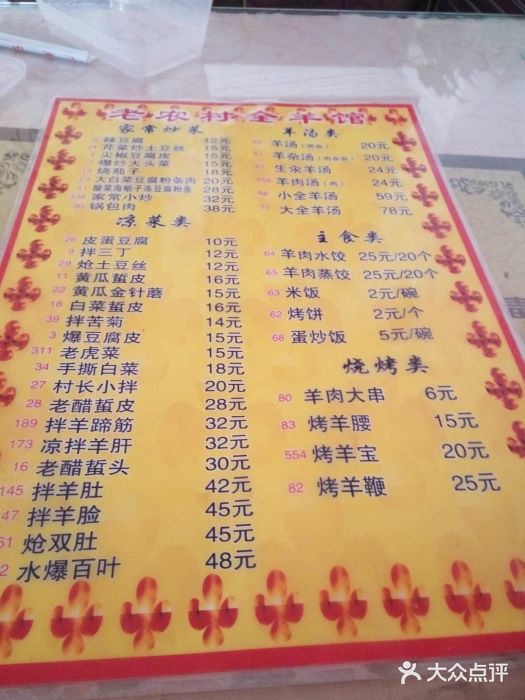 老农村全羊馆
家常炒菜
辣豆腐 12元
芹菜炒土豆丝 15元
尖椒豆腐皮 15元
爆炒大头菜 15元
烧茄子 18元
大白菜豆腐粉条肉 20元
酸菜海蛎子冻豆腐粉条 28元
338 家常小炒 32元
30 锅包肉 38元
凉菜类
26 皮蛋豆腐 10元
9 拌三丁 12元
29 炝土豆丝 12元
11 黄瓜蜇皮 16元
22 黄瓜金针蘑 15元
18 白菜蜇皮 16元
39 拌苦菊 14元
3 爆豆腐皮 15元
311 老虎菜 15元
34 手撕白菜 18元
27 村长小拌 20元
28 老醋蜇皮 28元
189 拌羊蹄筋 32元
173 凉拌羊肝 32元
16 老醋蜇头 30元
145 拌羊肚 42元
47 拌羊脸 45元
61 炝双肚 45元
2 水爆百叶 48元
羊汤类
羊汤(肉杂) 20元
羊杂汤(肉杂) 20元
生汆羊汤 24元
羊肉汤(肉) 24元
小全羊汤 59元
79 大全羊汤 78元
主食类
64 羊肉水饺 25元/20个
65 羊肉蒸饺 25元/20个
63 米饭 2元/碗
62 烤饼 2元/个
68 蛋炒饭 5元/碗
烧烤类
80 羊肉大串 6元
83 烤羊腰 15元
554 烤羊宝 20元
82 烤羊鞭 25元
大众点评